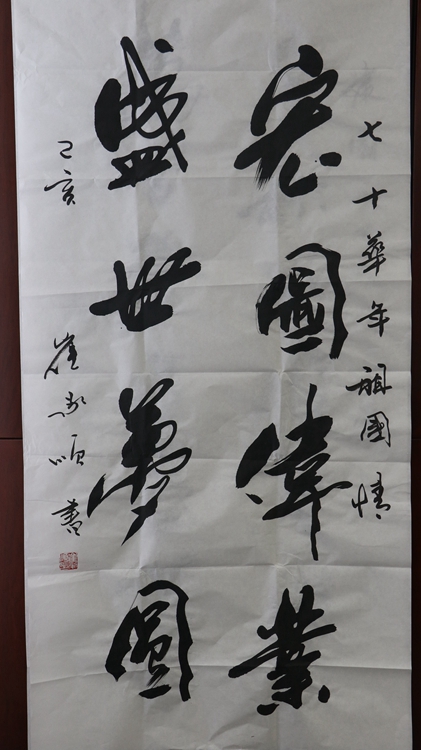 七十華年祖國情
宏圖偉業
盛世夢圓
己亥 崔家順書